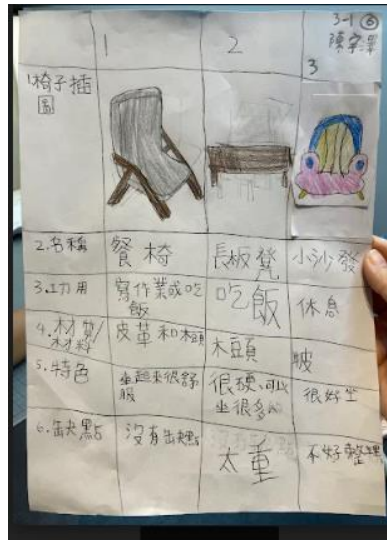 3-1 ⑥
陳宇澤
1 2 3
1.椅子插
圖
2.名稱 餐椅 長板凳 小沙發
3.功用 寫作業或吃
飯 吃飯 休息
4.材質/
材料 皮革和木頭 木頭
5.特色 坐起來很舒
服 很硬、可以
坐很多 很好坐
6.缺點 沒有缺點 太重 不好整理